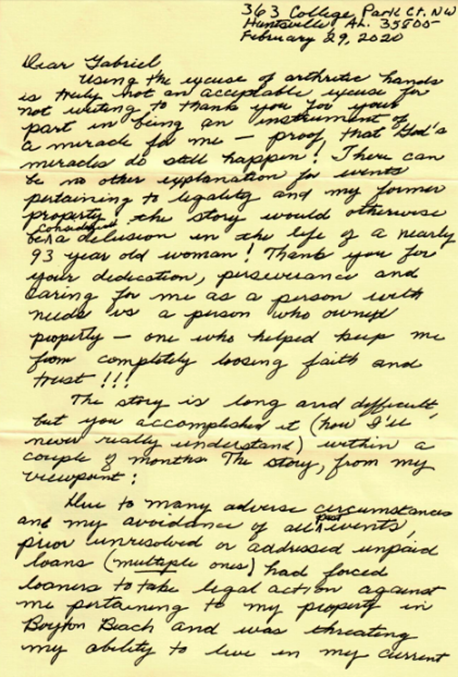 363 College Park Ct. NW
Huntsville AL. 35805
February 29, 2020
Dear Gabriel
Using the excuse of arthritic hands
is truly not an acceptable excuse for
not writing to thank you for your
part in being an instrument of
a miracle for me – proof that God's
miracles do still happen! There can
be no other explanation for events
pertaining to legality and my former
property, the story would otherwise
be a delusion in the life of a nearly
93 year old woman! Thank you for
your dedication, perseverance and
caring for me as a person with
needs vs a person who owned
property – one who helped keep me
from completely loosing faith and
trust!!!
The story is long and difficult
but you accomplished it (how I'll
never really understand) within a
couple of months. The story, from my
viewpoint:
Due to many adverse circumstances
and my avoidance of all past events,
prior unresolved or addressed unpaid
loans (multiple ones) had forced
loaners to take legal action against
me pertaining to my property in
Boyton Beach and was threating
my ability to live in my current